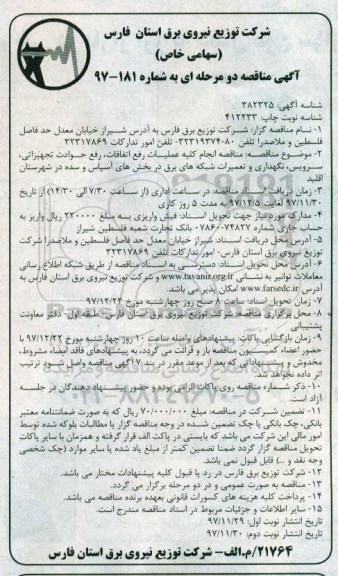 شرکت توزیع نیروی برق استان فارس
(سهامی خاص)
آگهی مناقصه دو مرحله ای به شماره ۱۸۱-۹۷
شناسه آگهی: ۳۸۲۳۲۵
شناسه نوبت چاپ: ۴۱۲۲۳۳
۱- نام مناقصه گزار: شرکت توزیع برق فارس به آدرس شیراز خیابان معدل حد فاصل
فلسطین و ملاصدرا تلفن ۸۰-۳۲۳۱۹۳۷۴ تلفن امور تدارکات ۳۲۳۱۷۸۶۹
۲- موضوع مناقصه: مناقصه انجام کلیه عملیات رفع اتفاقات، رفع حوادث تجهیزاتی،
سرویس، نگهداری و تعمیرات شبکه های برق در بخش های آسپاس و سده در شهرستان
اقلید
۳- زمان دریافت اسناد مناقصه: در ساعات اداری (از ساعت ۷/۳۰ الی ۱۴/۳۰) از تاریخ
۹۷/۱۱/۳۰ لغایت ۹۷/۱۲/۵ به مدت ۵ روز کاری
۴- مدارک مورد نیاز جهت تحویل اسناد: فیش واریزی به مبلغ ۲۲۰۰۰۰ ریال واریز به
حساب جاری شماره ۰۷۸۶۰۰۷۴۸۲۷ بانک تجارت شعبه فلسطین شیراز
۵- آدرس محل دریافت اسناد: شیراز خیابان معدل حد فاصل فلسطین و ملاصدرا شرکت
توزیع نیروی برق استان فارس- امور تدارکات تلفن ۳۲۳۱۷۸۶۹
۶- آدرس محل تحویل اسناد: دسترسی به اسناد مناقصه از طریق شبکه اطلاع رسانی
معاملات توانیر به نشانی www.tavanir.org.ir و شرکت توزیع نیروی برق استان فارس به
آدرس www.farsedc.ir امکان پذیر می باشد.
۷- زمان تحویل اسناد: ساعت ۸ صبح روز چهارشنبه مورخ ۹۷/۱۲/۲۲
۸- محل برگزاری مناقصه: شرکت توزیع نیروی برق استان فارس- طبقه اول- دفتر معاونت
پشتیبانی
۹- زمان بازگشایی پاکات: پیشنهادهای واصله ساعت ۱۰ روز چهارشنبه مورخ ۹۷/۱۲/۲۲ با
حضور اعضاء کمیسیون مناقصه باز و قرائت می گردد، به پیشنهادهای فاقد امضاء، مشروط،
مخدوش و پیشنهاداتی که بعد از موعد مقرر در بند ۷ آگهی مناقصه واصل شود ترتیب
اثر داده نخواهد شد.
۱۰- ذکر شماره مناقصه روی پاکات الزامی بوده و حضور پیشنهاد دهندگان در جلسه
آزاد است.
۱۱- تضمین شرکت در مناقصه: مبلغ ۷۰/۰۰۰/۰۰۰ ریال که به صورت ضمانتنامه معتبر
بانکی، چک بانکی یا چک تضمین شده در وجه مناقصه گزار یا مطالبات بلوکه شده توسط
امور مالی این شرکت می باشد که بایستی در پاکت الف قرار گرفته و همزمان با سایر پاکات
تحویل مناقصه گزار گردد ضمنا تضمین کمتر از مبلغ یاد شده یا سایر موارد (چک شخصی
وجه نقد و ..) قابل قبول نمی باشد.
۱۲- شرکت توزیع برق فارس در رد یا قبول کلیه پیشنهادات مختار می باشد.
۱۳- مناقصه به صورت عمومی و در دو مرحله برگزار می گردد.
۱۴- پرداخت کلیه هزینه های کسورات قانونی بعهده برنده مناقصه می باشد.
۱۵- سایر اطلاعات و جزئیات مربوط در اسناد مناقصه مندرج است.
تاریخ انتشار نوبت اول: ۹۷/۱۱/۲۹
تاریخ انتشار نوبت دوم: ۹۷/۱۱/۳۰
۲۱۷۶۴/م.الف- شرکت توزیع نیروی برق استان فارس